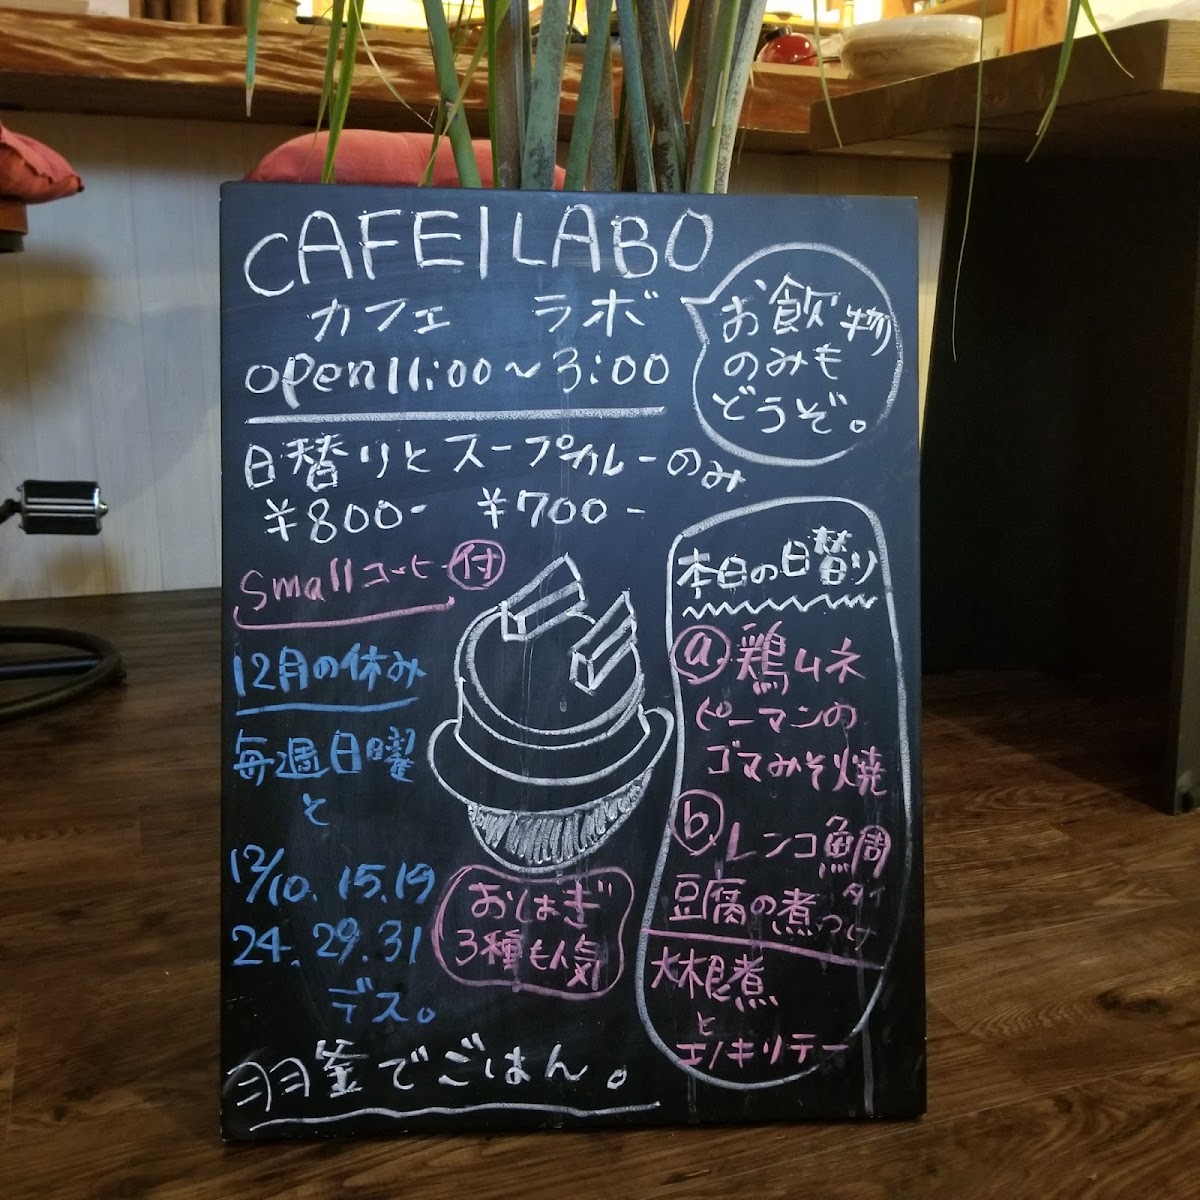 CAFE | LABO
カフェ ラボ
open 11:00～3:00
お飲物
のみも
どうぞ。
日替りとスープカレーのみ
¥800- ¥700-
smallコーヒー付
12月の休み
毎週日曜
と
12/10. 15.19
24. 29.31
デス。
おはぎ
3種も人気
本日の日替り
ⓐ鶏ムネ
ピーマンの
ゴマみそ焼
ⓑレンコ鯛
タイ
豆腐の煮つけ
大根煮
と
エノキソテー
羽釜でごはん。